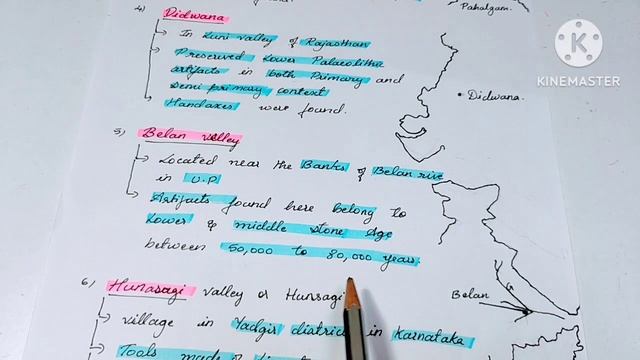 Pahalgam.
4) Didwana
→ In Luni valley of Rajasthan
→ Preserved Lower Palaeolithic
artifacts in both Primary and
Semi primary context
→ Handaxes were found.
• Didwana
KINEMASTER
5) Belan valley
→ Located near the Banks of Belan river
in U.P
→ Artifacts found here belong to
Lower & middle Stone Age
between 50,000 to 80,000 years.
Belan
6) Hunasagi valley or Hunsagi
→ village in Yadgir district in Karnataka
→ Tools made of